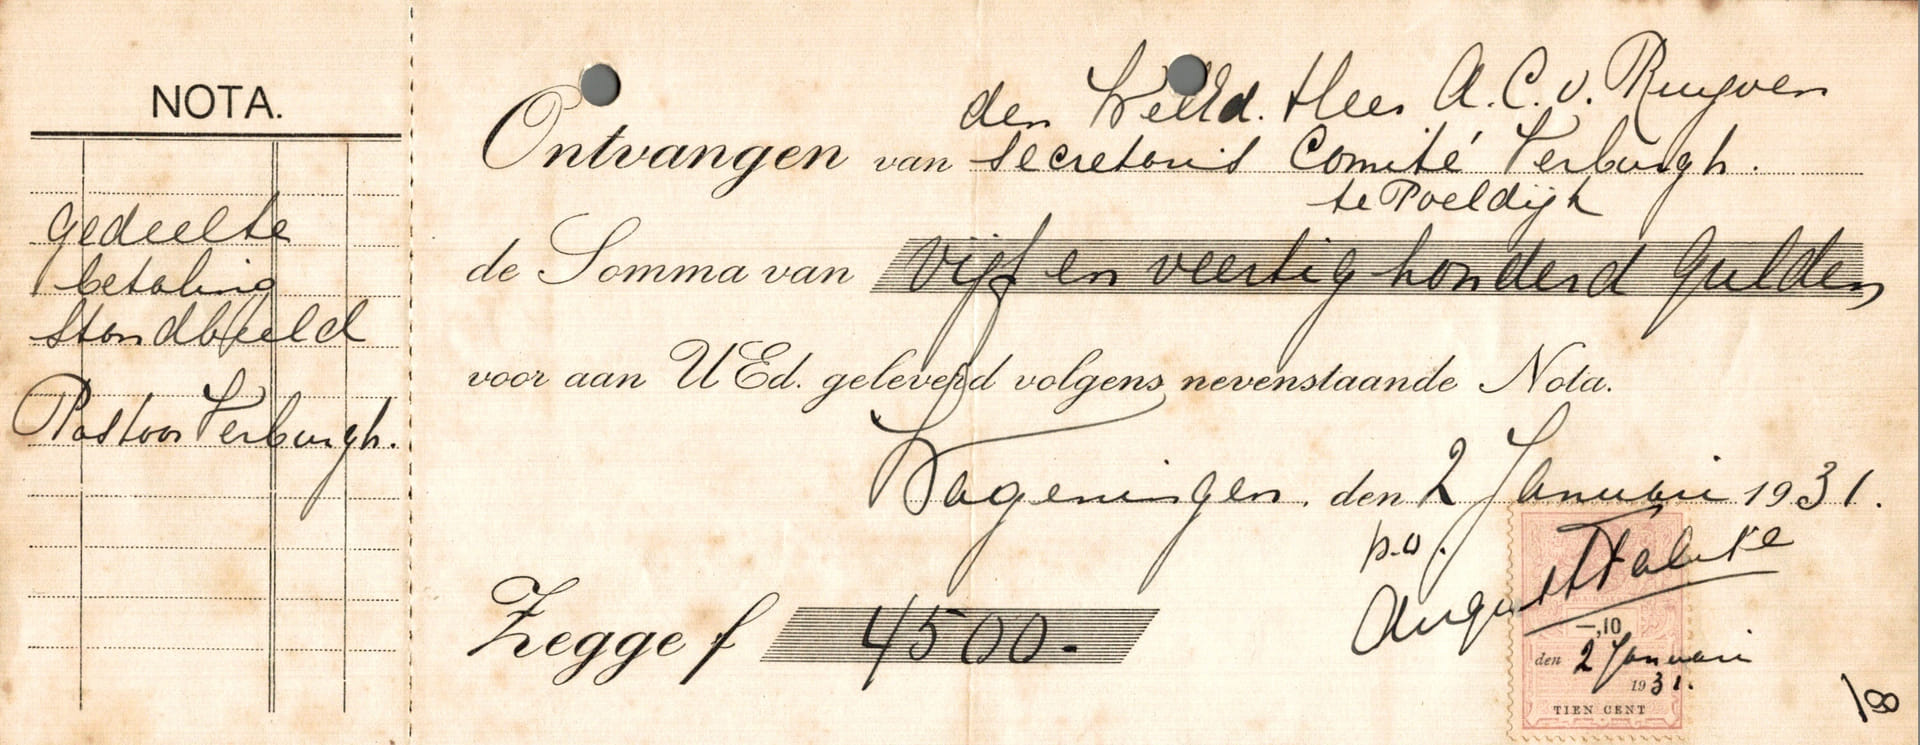 NOTA.
gedeelte
betaling
standbeeld
Pastoor Verburgh.
den WelEd. Heer A. C. v. Ruyven
Ontvangen van secretaris Comité Verburgh.
te Poeldijk
de Somma van vijf en veertig honderd gulden
voor aan UEd. geleverd volgens nevenstaande Nota.
Wageningen, den 2 Januari 1931.
p.o.
August Falise
Zegge f 4500.-
-,10
den 2 Januari
1931.
TIEN CENT